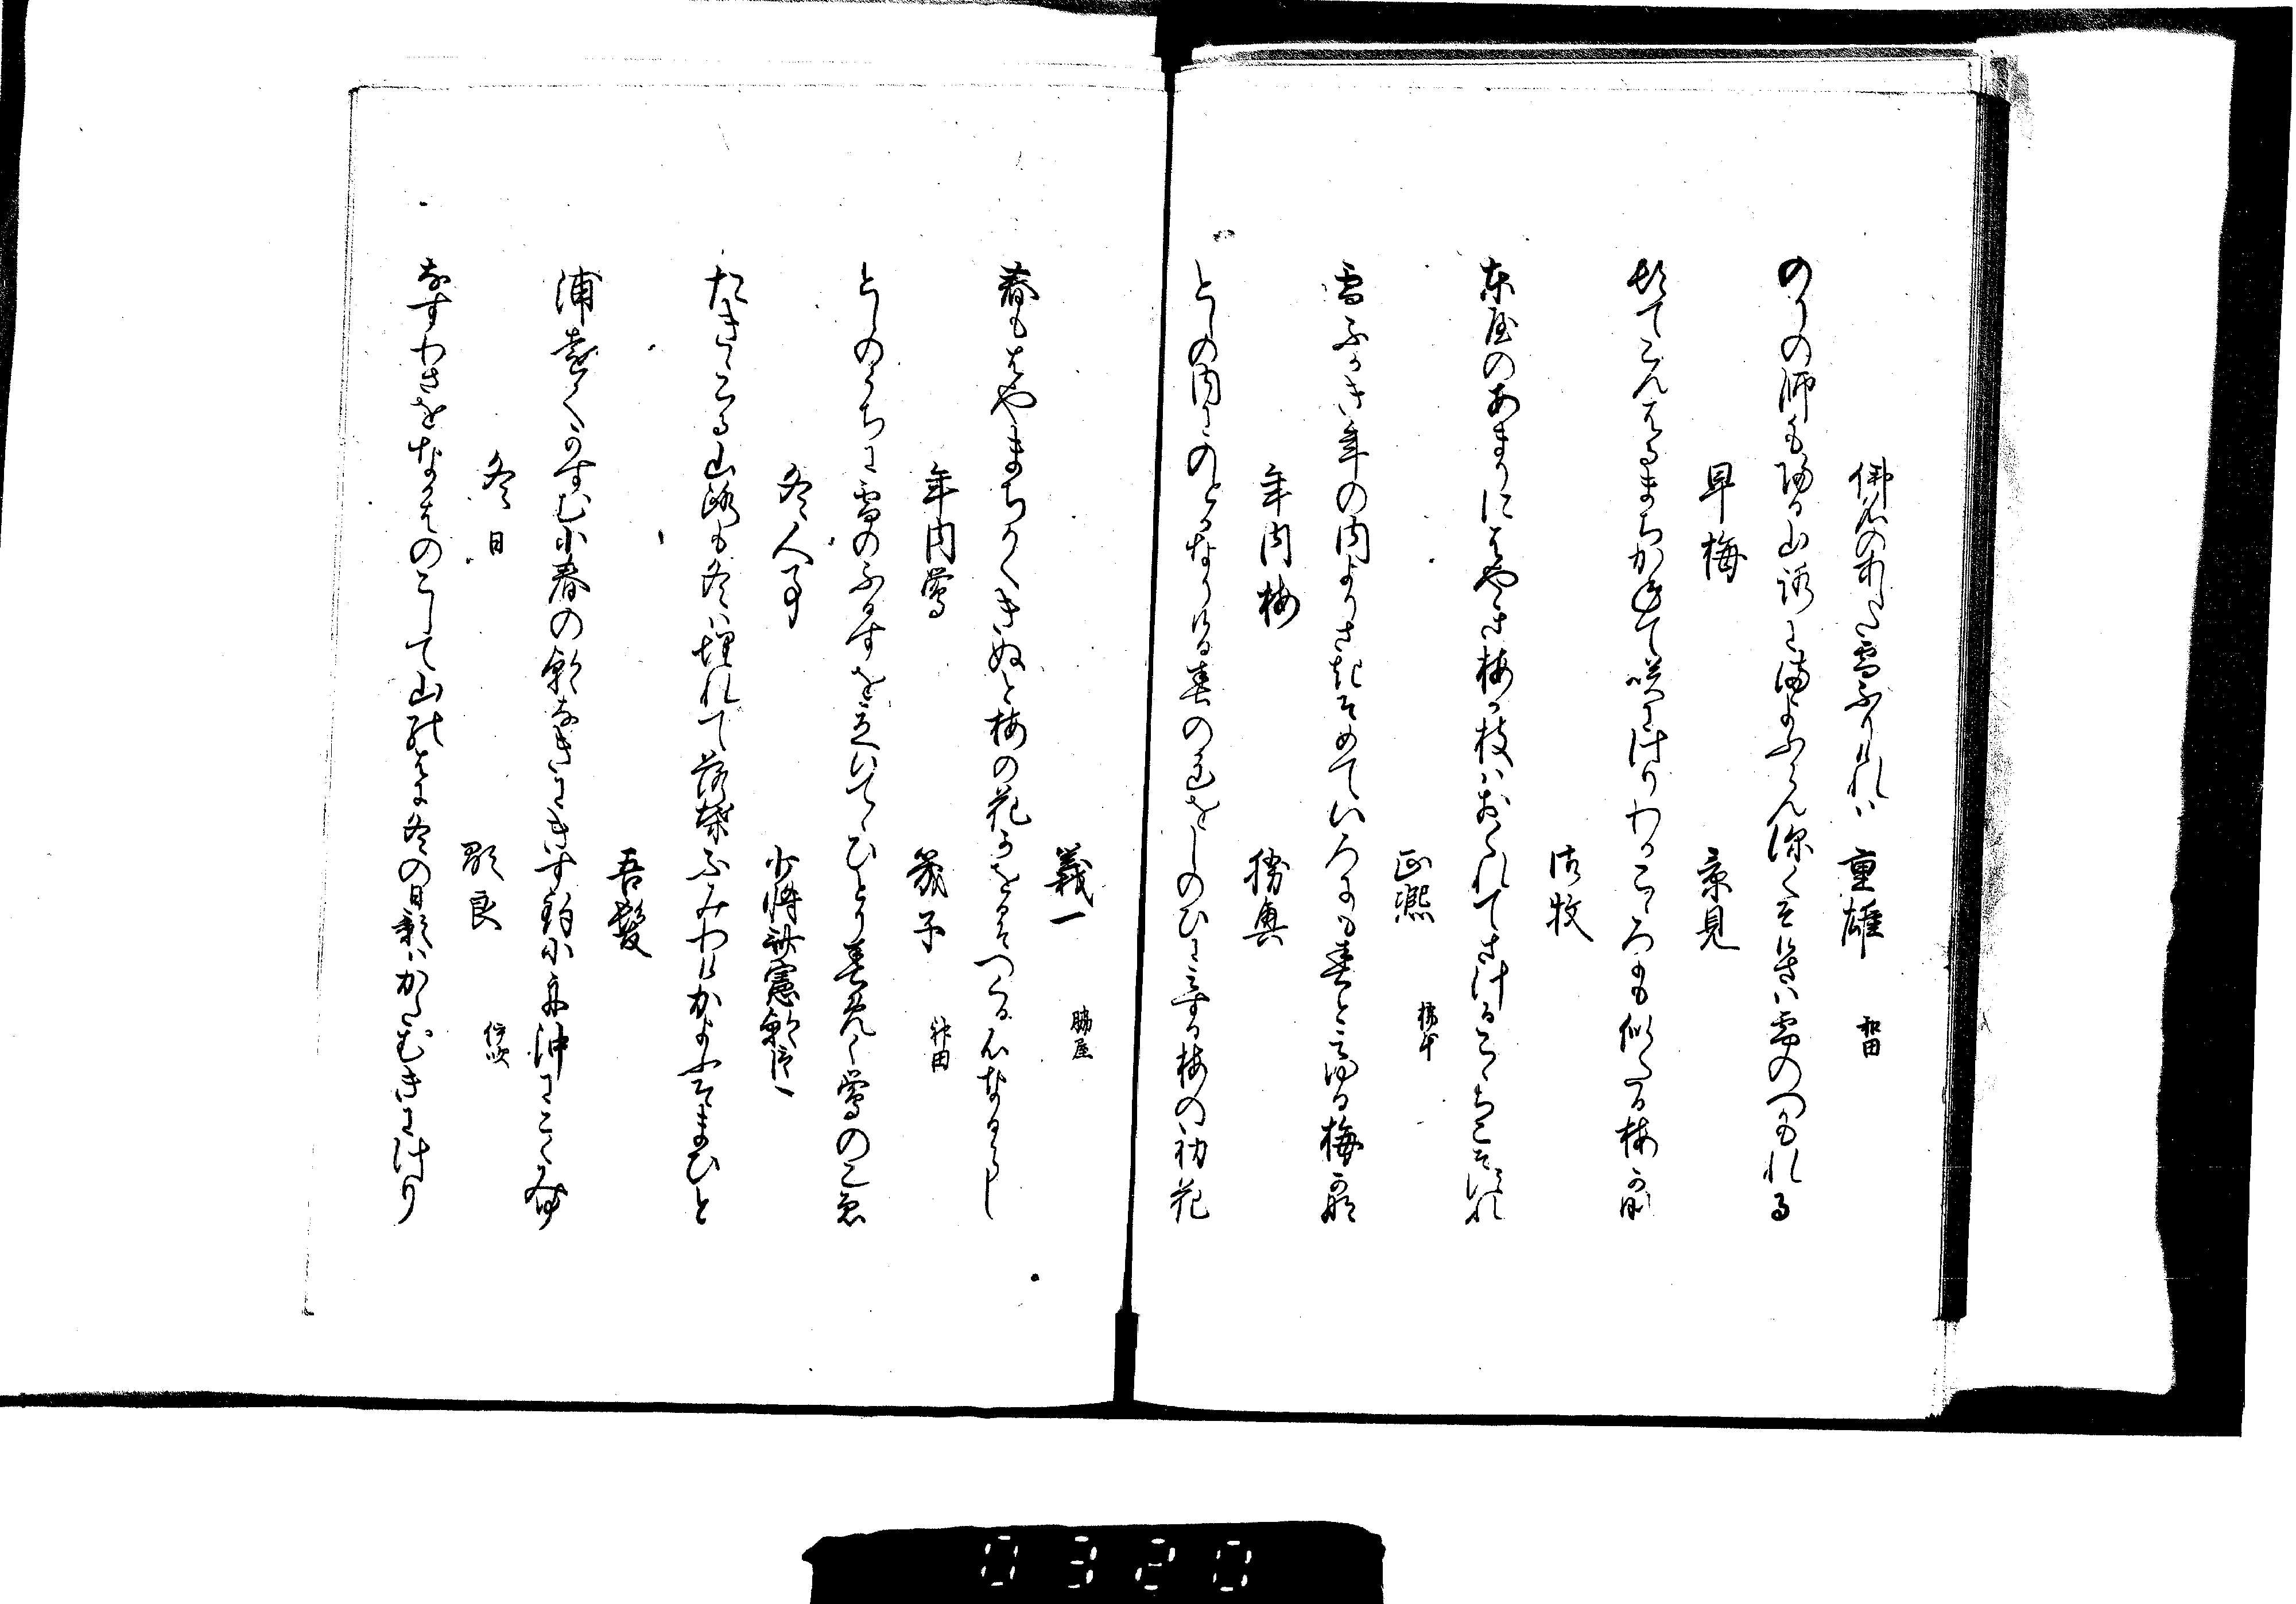 佛名のあした雪ふりけれハ　重雄　和田
のりの師も帰る山路にまよふらん深くそけさハ雪のつもれる
早梅　景見
やてこんはるまちかねて咲にけりわかこゝろにも似たる梅かな
清牧
東屋のあまりにはやき梅か枝ハおられてさけるこゝちこそすれ
正凞
雪ふかき年の内よりさきそめていろにも春と見ゆる梅かな
年内梅　勝興
としの内にのとかなりける春の色をしのひに見する梅の初花
義一　脇屋
春もはやまちかくきぬと梅の花かをるそつくる心なるらし
年内鶯　幾子　神田
としのうちに雪のふるすを立いてゝひとり春めく鶯のこゑ
冬人事　少将
たきゝこる山路も冬ハ埋れて落葉ふみわけかよふそまひと
吾髪
浦遠くかすむ小春の朝なきにきす釣小舟沖にこくみゆ
冬日　歌良
なすわさをなかはのこして山のはに冬の日影ハかたむきにけり
0320